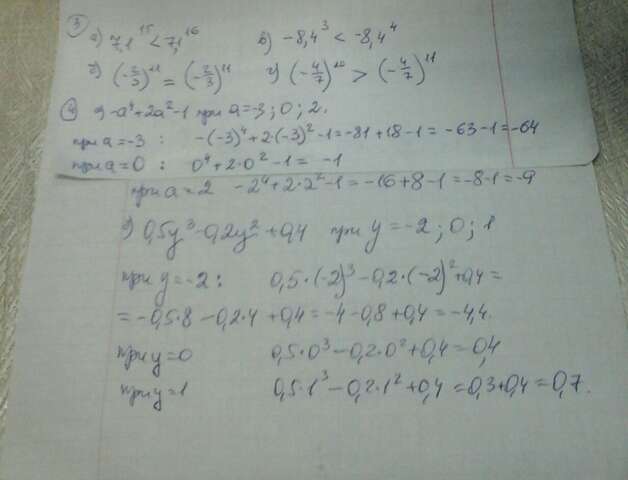 ③ а) 7,1¹⁵ < 7,1¹⁶ в) -8,4³ < -8,4⁴
б) (-2/3)¹¹ = (-2/3)¹¹ г) (-4/7)¹⁰ > (-4/7)¹¹
④ -a⁴+2a²-1 при a=-3; 0; 2.
при a=-3: -(-3)⁴+2·(-3)²-1=-81+18-1=-63-1=-64
при a=0: 0⁴+2·0²-1= -1
при a=2 -2⁴+2·2²-1=-16+8-1=-8-1=-9
0,5y³-0,2y²+0,4 при y=-2; 0; 1
при y=-2: 0,5·(-2)³-0,2·(-2)²+0,4=
=-0,5·8-0,2·4+0,4=-4-0,8+0,4=-4,4.
при y=0 0,5·0³-0,2·0²+0,4=0,4
при y=1 0,5·1³-0,2·1²+0,4=0,3+0,4=0,7.